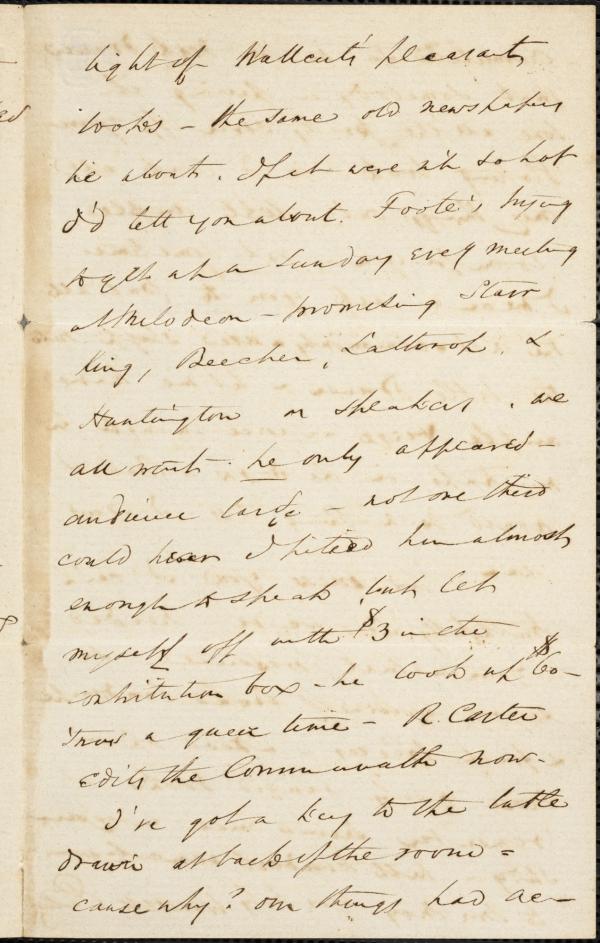 light of Wallcut's pleasant
looks – the same old newspapers
lie about. If it were n't so hot
I'd tell you about. Foote's trying
to get up a Sunday eve'g meeting
at Melodeon – promising Starr
King, Beecher, Lathrop, &
Huntington as speakers. we
all went. he only appeared –
audience large – not one third
could hear I pitied him almost
enough to speak but let
myself off with $3 in the
contribution box – he took up $60 –
'Twas a queer time – R. Carter
edits the Commonwealth now –
I've got a key to the little
drawer at back of the room –
cause why? our things had ac–